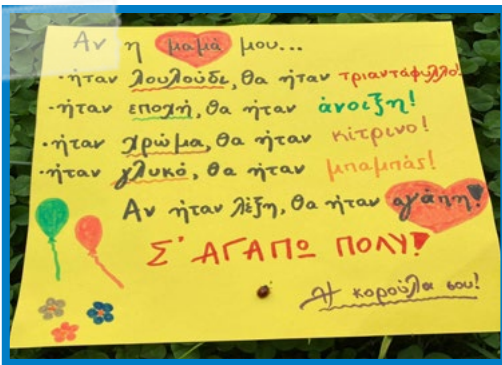 Αν η μαμά μου...
·ήταν λουλούδι, θα ήταν τριαντάφυλλο!
·ήταν εποχή, θα ήταν άνοιξη!
·ήταν χρώμα, θα ήταν κίτρινο!
·ήταν γλυκό, θα ήταν μπαμπάς!
Αν ήταν λέξη, θα ήταν αγάπη!
Σ' ΑΓΑΠΩ ΠΟΛΥ!
Η κορούλα σου!